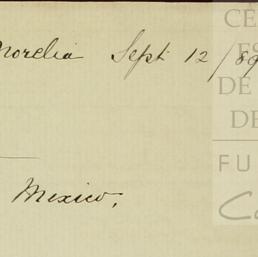 Morelia Sept 12/89
Mexico.
CE
ES
DE
DE
FU
C